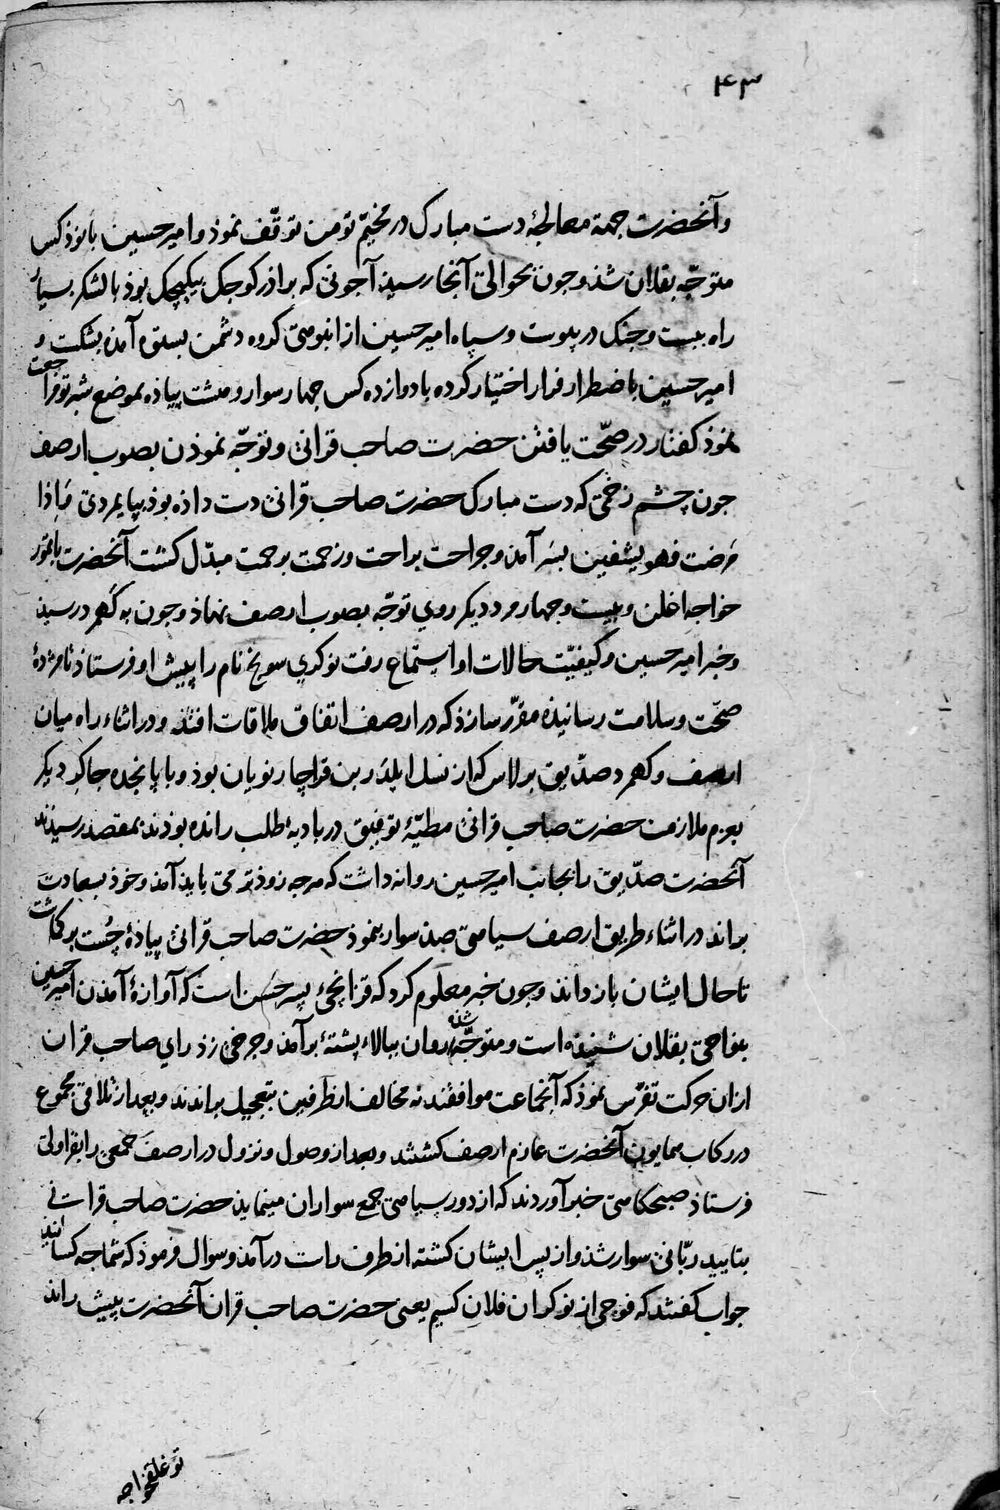 ۴۳
وآنحضرت جهة معالجهٔ دست مبارک در مخیّم تومن توقّف نموذ و امیر حسین با نوذ کس
متوجّه بقلان شذ و جون بحوالیّ آنجا رسیذ آجونی که براذر کوجک بیکیچک بوذ با لشکر بسیار
راه ببست و جنک در پیوست و سپاه امیر حسین از انبوهیّ کروه دشمن بستوه آمذه بشکست و
امیر حسین باضطرار فرار اختیار کرده با دوازده کس جهار سوار و هشت پیاذه بموضع شبرتو مراجعت
نموذ کفتار در صحّت یافتن حضرت صاحب قرانی و توجّه نموذن بصوب ارصف
جون چشم زخمی که دست مبارک حضرت صاحب قرانی دست داذه بوذ بپایمردیّ وَاِذا
مَرِضت فهو یشفین بسر آمذ و جراحت براحت و زحمت برحمت مبدّل کشت آنحضرت با تمور
خواجه اغلن و بیست و جهار مرد دیکر روی توجّه بصوب ارصف نهاذ و جون به کَهمرد رسیذ
و خبر امیر حسین و کیفیّت حالات او استماع رفت نوکری سونج نام را پیش او فرستاذ تا مژدهٔ
صحّت و سلامت رسانیذه مقرّر سازذ که در ارصف اتفاق ملاقات افتذ و در اثناء راه میان
ارصف و کهمرد صدّیق برلاس که از نسل ایلدر بن قراچار نویان بوذ و با پانجده جاکر دیکر
بعزم ملازمت حضرت صاحب قرانی مطیّهٔ توفیق در بادیهٔ طلب رانده بوذند بمقصد رسیذند
آنحضرت صدّیق را بجانب امیر حسین روانه داشت که هرجه زوذتر می بایذ آمذ و خوذ بسعادت
براند در اثناء طریق ارصف سیاهی صذ سوار بنموذ حضرت صاحب قرانی پیاذهٔ چُست برکماشت
تا حال ایشان باز داند و جون خبر معلوم کرد که قزانجی پسر حسن است که آوازهٔ آمذن امیر حسین
بنواحی بقلان شنیذه است و متوجّه شذه روان ببالاء پشتهٔ برآمذ و جرخی زذ رای صاحب قران
ازان حرکت تفرّس نموذ که آنجماعت موافقند نه مخالف از طرفین بتعجیل براندند و بعد از تلاقی مجموع
در رکاب همایون آنحضرت عازم ارصف کشتند و بعد از وصول و نزول در ارصف جمعی را بقراولی
فرستاذ صبحکاهی خبر آوردند که از دور سیاهی جمع سواران مینماید حضرت صاحب قرانی
بتایید ربّانی سوار شذ و از پس ایشان کشته از طرف راست درآمذ و سوال فرموذ که شما جه کسانید
جواب کفتند که فوجی از نوکران فلان کسیم یعنی حضرت صاحب قران آنحضرت پیش راند
توغلقخواجه